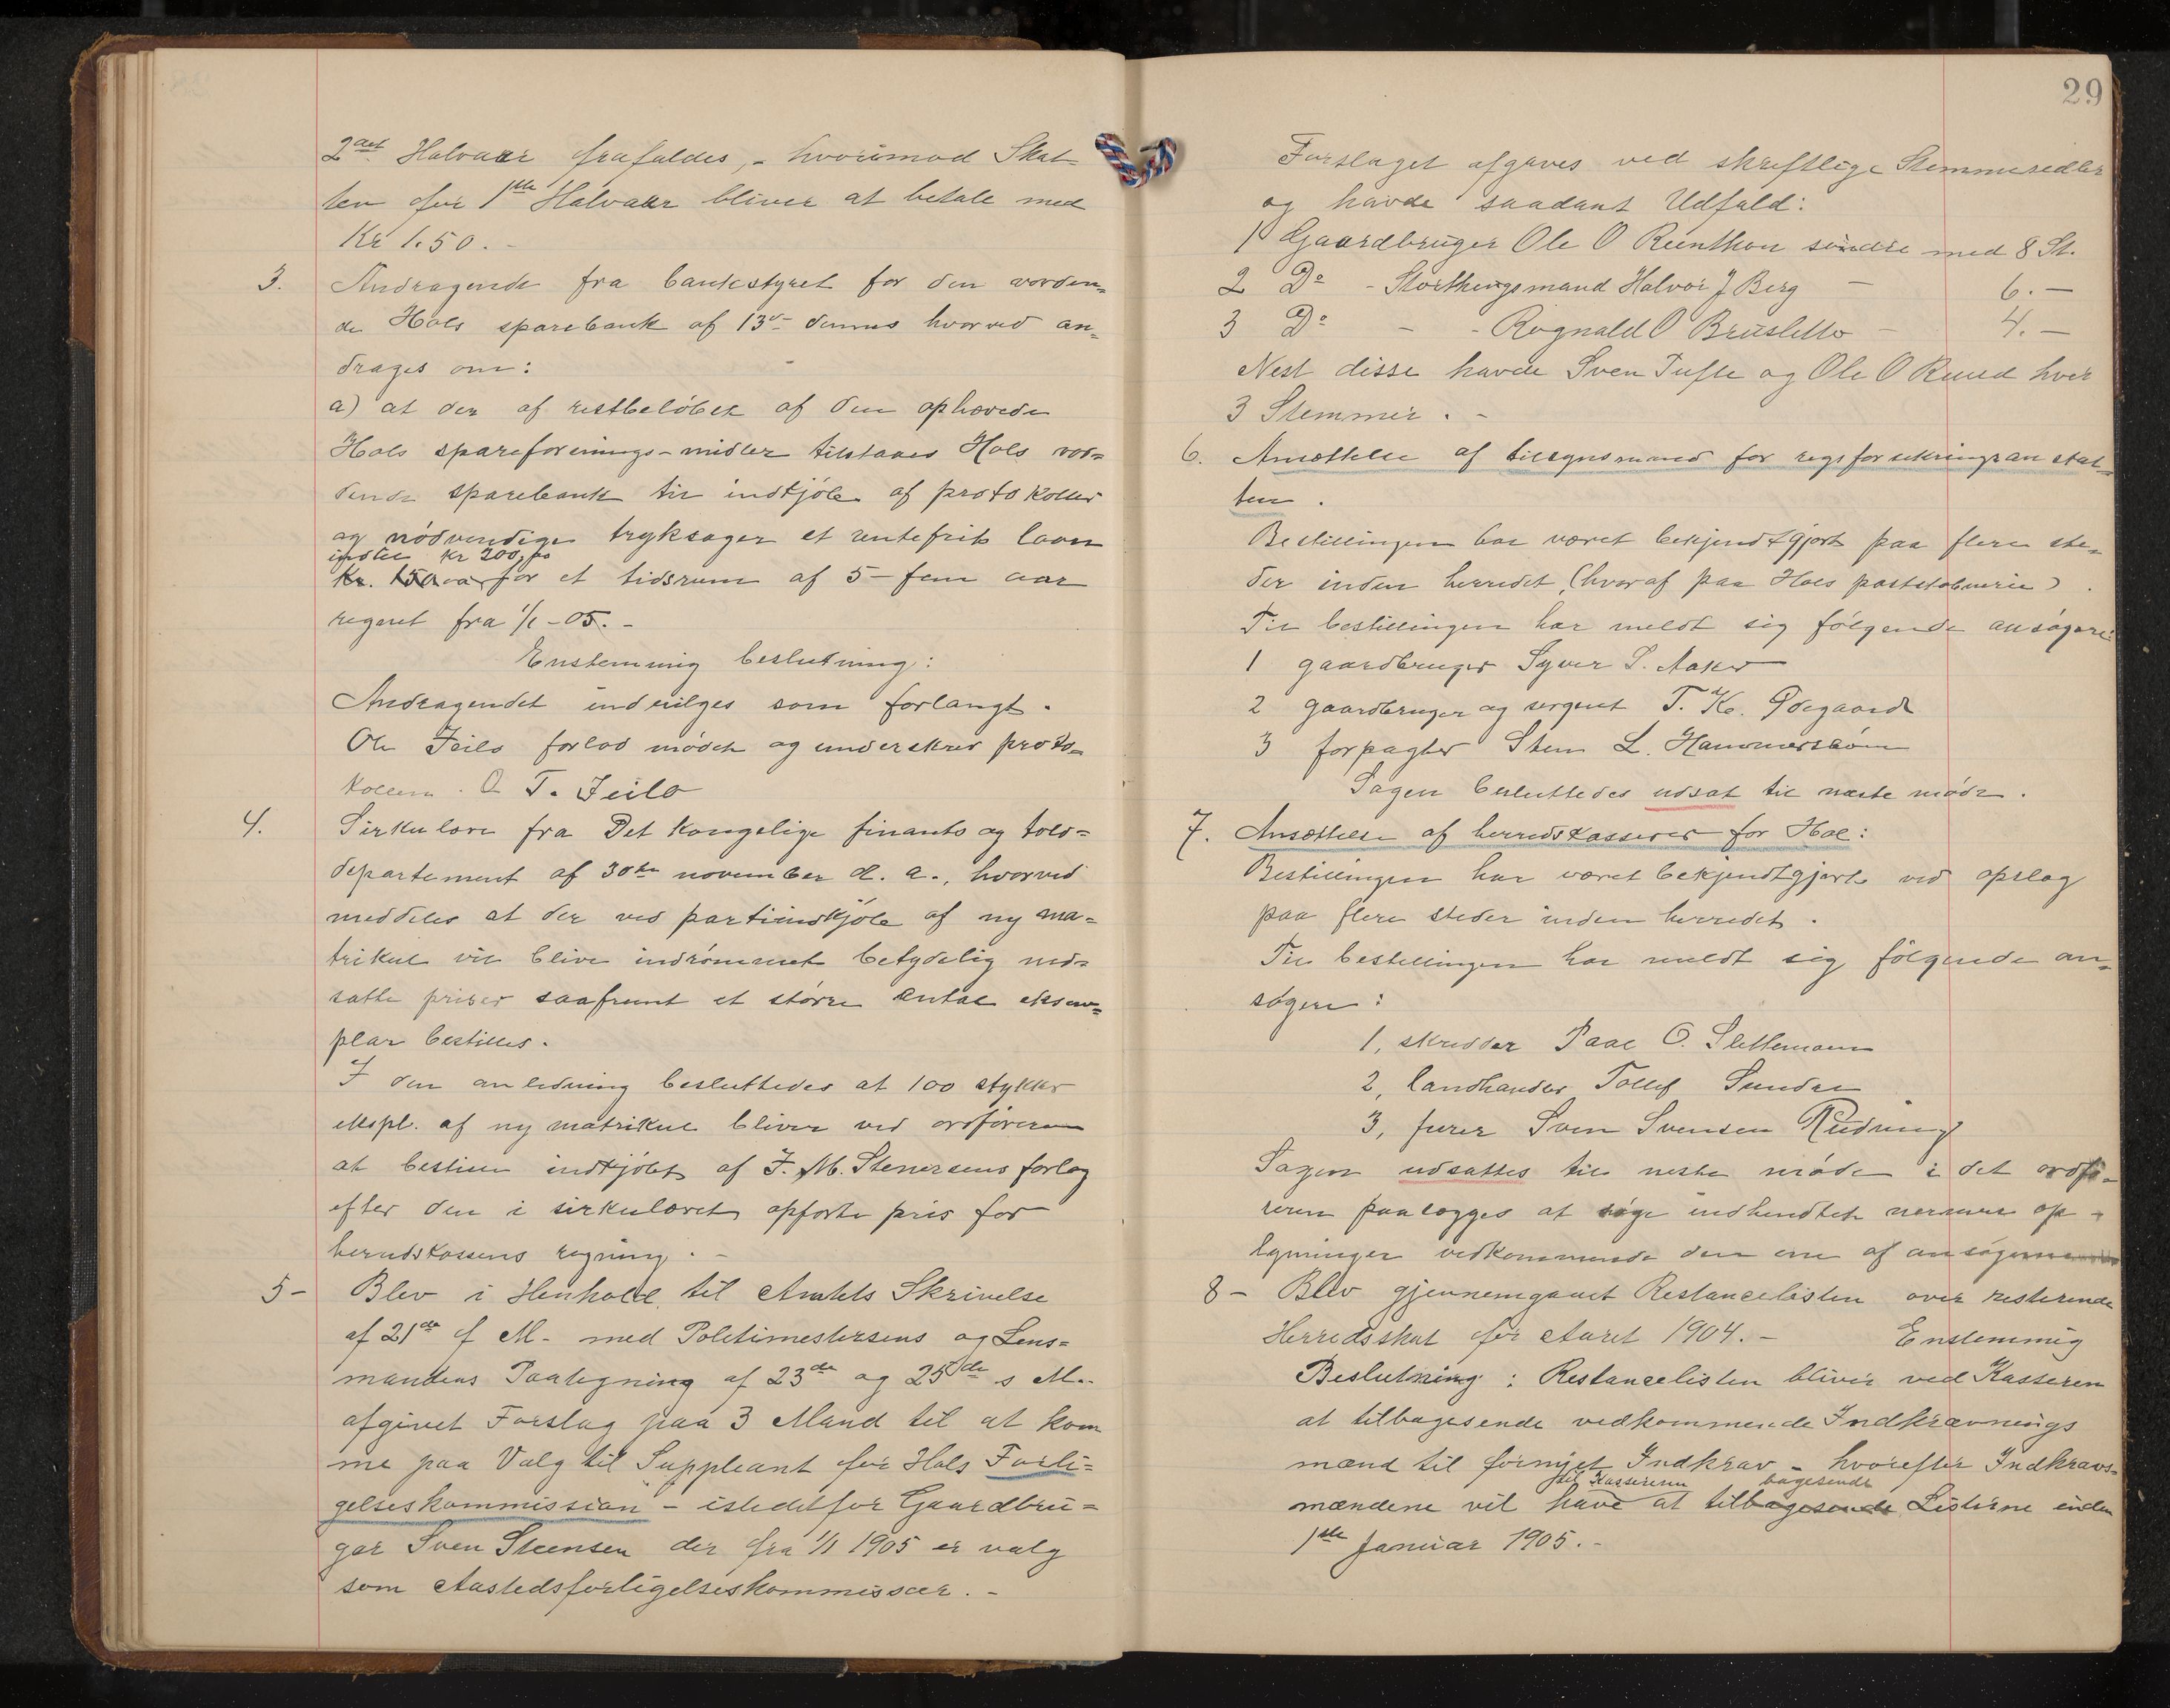 2det Halvaar frafaldes, - hvorimod Skat
ten for 1ste Halvaar bliver at betale med
Kr 1.50. -
3. Andragende fra bankstyret for den vorden=
de Hols sparebank af 13de dennes hvorved an=
drages om:
a) at der af restbeløbet af den ophævede
Hols spareforenings-midler tilstaaes Hols vor=
dende sparebank til indkjøb af protokoller
og nødvendige tryksager et rentefrit laan
indtil kr 200,00
Kr. 150 for et tidsrum af 5 - fem aar
regnet fra 1/1 - 05. -
Enstemmig beslutning:
Andragendet indvilges som forlangt.
Ole Jeilo forlod mødet og underskrev proto=
kollen. O T. Jeilo
4. Sirkulære fra Det kongelige finants og told=
departement af 30te november d. a., hvorved
meddeles at der ved partiindkjøb af ny ma=
trikul vil blive indrømmet betydelig ned=
satte priser saafremt et større antal eksem=
plar bestilles.
I den anledning besluttedes at 100 stykker
ekspl. af ny matrikul bliver ved ordføreren
at bestille indkjøbt af J. M. Stenersens forlag
efter den i sirkulæret opførte pris for
herredskassens regning. -
5 - Blev i Henhold til Amtets Skrivelse
af 21de f M. med Politimestersens og Lens=
mandens Paategning af 23de og 25de s M. -
afgivet Forslag paa 3 Mand til at kom
me paa Valg til Suppleant for Hols Forli=
gelseskommission - istedetfor Gaardbru=
ger Sven Steensen der fra 1/1 1905 er valg
som Aastedsforligelseskommissær. -
29
Forslaget afgaves ved skriftlige Stemmesedler
og havde saadant Udfald:
1 Gaardbruger Ole O Reinthon søndre med 8 St.
2 Do - Storthingsmand Halvor J Berg - 6. -
3 Do - - Rognald O Brusletto - 4. -
Nest disse havde Sven Tufte og Ole O Ruud hver
3 Stemmer. -
6. Ansættelse af tilsynsmand for rigsforsikringsanstal=
ten.
Bestillingen har været bekjendtgjort paa flere ste=
der inden herredet, (hvoraf paa Hols poststabneri).
Til bestillingen har meldt sig følgende ansøgere:
1 gaardbruger Syver S. Aaker
2 gaardbruger og sergent T. K. Ødegaard
3 forpagter Sten L. Hammersbøen
Sagen besluttedes udsat til næste møde.
7. Ansættelse af herredskasserer for Hol:
Bestillingen har været bekjendtgjort ved opslag
paa flere steder inden herredet.
Til bestillingen har meldt sig følgende an=
søgere:
1, skredder Paal O. Slettemoen
2, landhandler Tollef Sundre
3, furer Sven Svensen Rudningen
Sagen udsattes til neste møde i det ordfø=
reren paalægges at søge indhendtet nermere op=
lysninger vedkommende den ene af ansøgerne
8 - Blev gjennemgaaet Restancelisten over resterende
Herredsskat for Aaret 1904. - Enstemmig
Beslutning: Restancelisten bliver ved Kasseren
at tilbagesende vedkommende Indkrævnings
mænd til fornyet Indkrav - hvorefter Indkravs=
til Kassereren bagesende
mændene vil have at tilbagesende Listerne inden
1ste Januar 1905. -